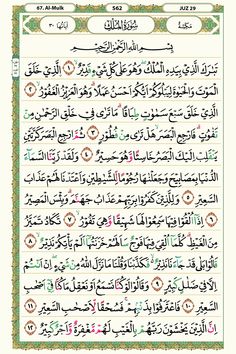 67. Al-Mulk 562 JUZ 29
سُوْرَةُ الْمُلْكِ
بِسْمِ اللهِ الرَّحْمٰنِ الرَّحِيْمِ
تَبٰرَكَ الَّذِيْ بِيَدِهِ الْمُلْكُ وَهُوَ عَلٰى كُلِّ شَيْءٍ قَدِيْرٌ ۝١ الَّذِيْ خَلَقَ
الْمَوْتَ وَالْحَيٰوةَ لِيَبْلُوَكُمْ اَيُّكُمْ اَحْسَنُ عَمَلًا وَهُوَ الْعَزِيْزُ الْغَفُوْرُ ۝٢
الَّذِيْ خَلَقَ سَبْعَ سَمٰوٰتٍ طِبَاقًا مَا تَرٰى فِيْ خَلْقِ الرَّحْمٰنِ مِنْ
تَفٰوُتٍ فَارْجِعِ الْبَصَرَ هَلْ تَرٰى مِنْ فُطُوْرٍ ۝٣ ثُمَّ ارْجِعِ الْبَصَرَ كَرَّتَيْنِ
يَنْقَلِبْ اِلَيْكَ الْبَصَرُ خَاسِئًا وَّهُوَ حَسِيْرٌ ۝٤ وَلَقَدْ زَيَّنَّا السَّمَآءَ
الدُّنْيَا بِمَصَابِيْحَ وَجَعَلْنٰهَا رُجُوْمًا لِّلشَّيٰطِيْنِ وَاَعْتَدْنَا لَهُمْ عَذَابَ
السَّعِيْرِ ۝٥ وَلِلَّذِيْنَ كَفَرُوْا بِرَبِّهِمْ عَذَابُ جَهَنَّمَ وَبِئْسَ الْمَصِيْرُ
۝٦ اِذَآ اُلْقُوْا فِيْهَا سَمِعُوْا لَهَا شَهِيْقًا وَّهِيَ تَفُوْرُ ۝٧ تَكَادُ تَمَيَّزُ
مِنَ الْغَيْظِ كُلَّمَآ اُلْقِيَ فِيْهَا فَوْجٌ سَاَلَهُمْ خَزَنَتُهَآ اَلَمْ يَاْتِكُمْ نَذِيْرٌ ۝٨
قَالُوْا بَلٰى قَدْ جَآءَنَا نَذِيْرٌ فَكَذَّبْنَا وَقُلْنَا مَا نَزَّلَ اللهُ مِنْ شَيْءٍ اِنْ اَنْتُمْ
اِلَّا فِيْ ضَلٰلٍ كَبِيْرٍ ۝٩ وَقَالُوْا لَوْ كُنَّا نَسْمَعُ اَوْ نَعْقِلُ مَا كُنَّا فِيْٓ اَصْحٰبِ
السَّعِيْرِ ۝١٠ فَاعْتَرَفُوْا بِذَنْبِهِمْ فَسُحْقًا لِّاَصْحٰبِ السَّعِيْرِ ۝١١
اِنَّ الَّذِيْنَ يَخْشَوْنَ رَبَّهُمْ بِالْغَيْبِ لَهُمْ مَّغْفِرَةٌ وَّاَجْرٌ كَبِيْرٌ ۝١٢